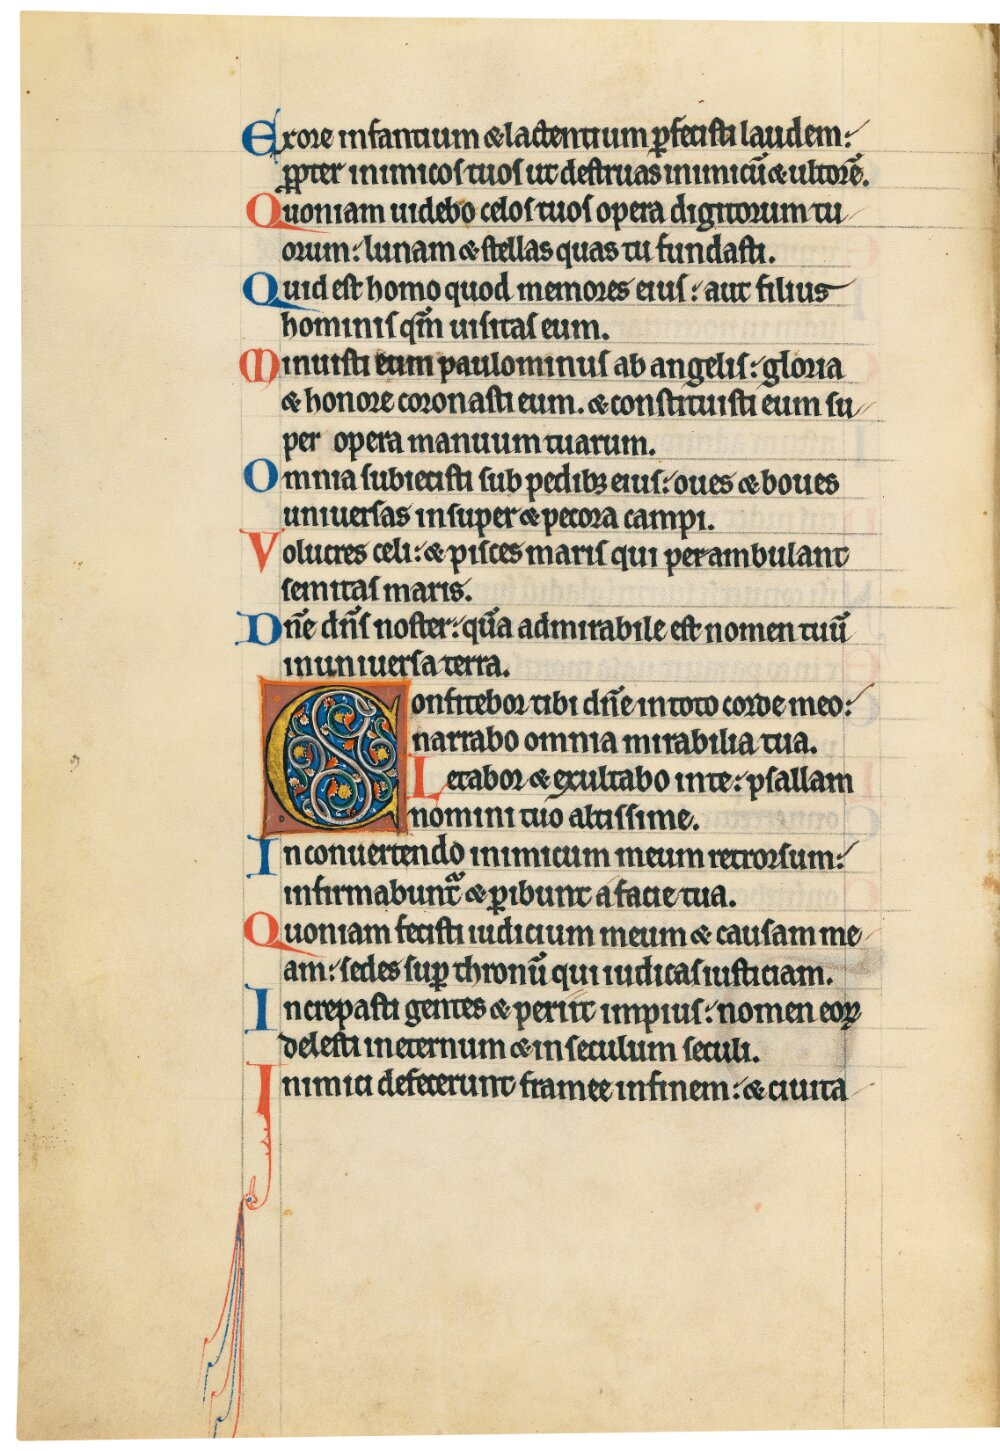 Exore infantium & lactentium ꝑfecisti laudem:
ꝓpter inimicos tuos ut destruas inimicū & ultorē.
Quoniam uidebo celos tuos opera digitorum tu
orum: lunam & stellas quas tu fundasti.
Quid est homo quod memores eius: aut filius
hominis qm̄ uisitas eum.
Minuisti eum paulominus ab angelis: gloria
& honore coronasti eum. & constituisti eum su
per opera manuum tuarum.
Omnia subiecisti sub pedibꝫ eius: oues & boues
uniuersas insuper & pecora campi.
Volucres celi: & pisces maris qui perambulant
semitas maris.
Dn̄e dn̄s noster: qua̅ admirabile est nomen tuū
inuniuersa terra.
Confitebor tibi dn̄e intoto corde meo:
narrabo omnia mirabilia tua.
Letabor & exultabo inte: psallam
nomini tuo altissime.
Inconuertendo inimicum meum retrorsum:
infirmabuntᷓ & ꝑibunt afacie tua.
Quoniam fecisti iudicium meum & causam me
am: sedes suꝑ thronū qui iudicas iusticiam.
Increpasti gentes & periit impius: nomen eoꝝ
delesti ineternum & inseculum seculi.
Inimici defecerunt framee infinem: & ciuita